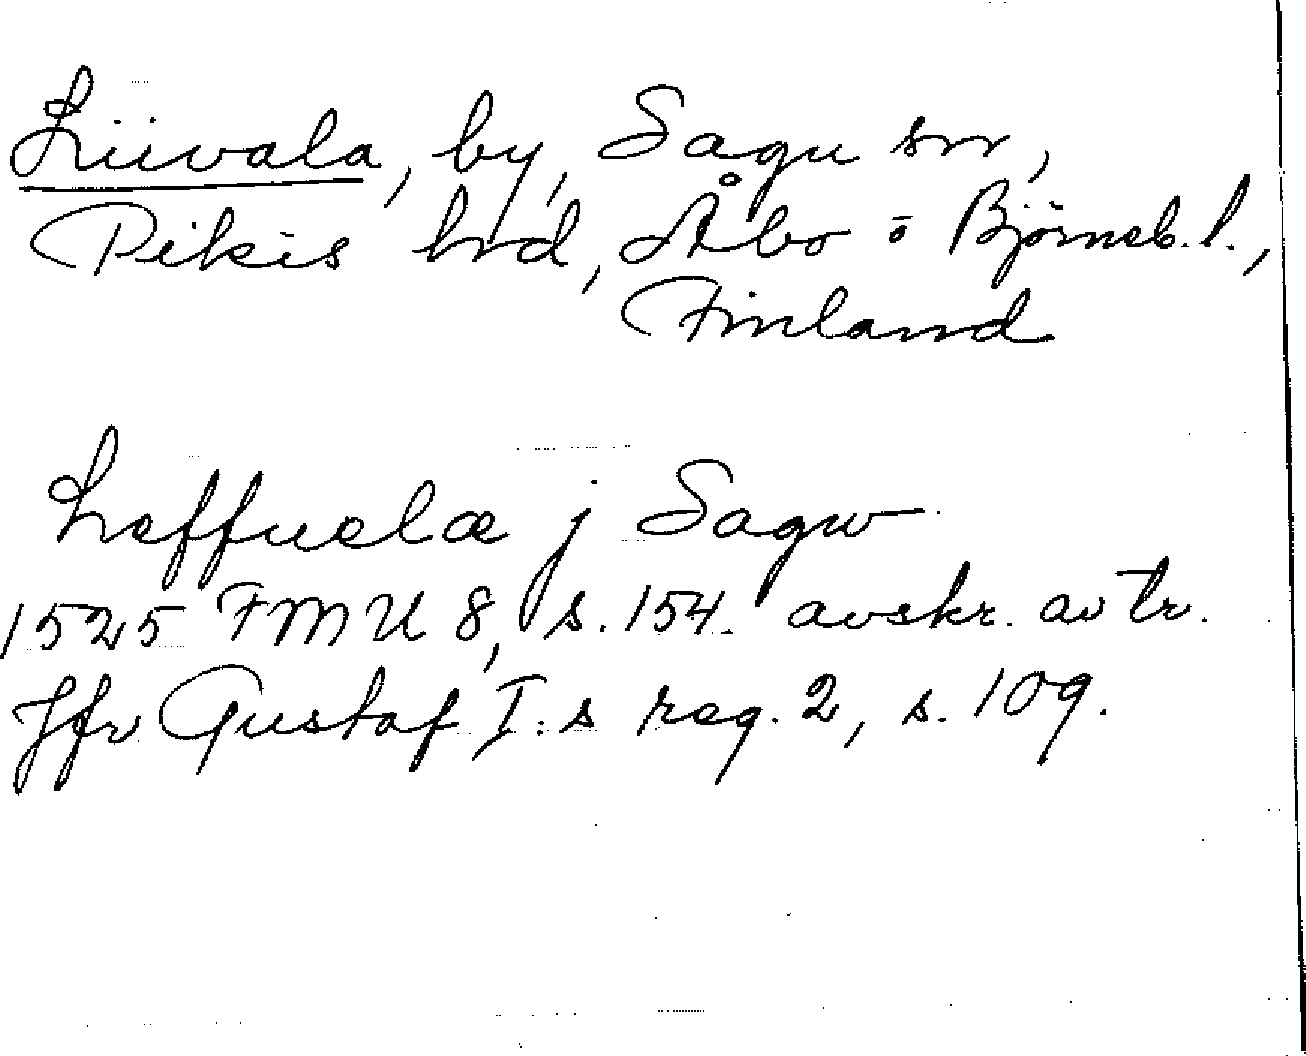 Liivala, by, Sagu sn,
Pikis hrd, Åbo o Björneb. l.,
Finland
Leffuelæ j Sagw
1525 FMU 8, s. 154. avskr. av tr.
Jfr Gustaf I:s reg. 2, s. 109.